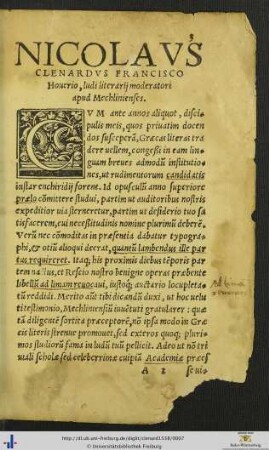 3
NICOLAVS
CLENARDVS FRANCISCO
Houerio, ludi literarij moderatori
apud Mechlinienses.
CVM ante annos aliquot, disci-
pulis meis, quos priuatim docen
dos susceperā, Græcas literas tra
dere vellem, congessi in eam lin-
guam breues admodū institutio-
nes, ut rudimentorum candidatis
instar enchiridij forent. Id opusculū anno superiore
prælo cōmittere studui, partim ut auditoribus nostris
expeditior uia sterneretur, partim ut desiderio tuo sa
tisfacerem, cui necessitudinis nomine plurimū deberē.
Verū nec cōmoditas in præsentia dabatur typogra-
phi, & otiū alioqui deerat, quantū lambendus ille par
tus requireret. Itaq; his proximis diebus tēporis par
tem nactus, et Rescio nostro benigne operas præbente
libellū ad limam reuocaui, iustoq; auctario locupleta-
tū reddidi. Merito aūt tibi dicandū duxi, ut hoc uelu
ti testimonio, Mechliniensiū iuuētuti gratularer: quæ
tā diligentē sortita præceptorē, nō ipsa modo in Græ
cis literis strenue promouet, sed exteros quoq; pluri-
mos studiorū fama in ludū tuū pellicit. Adeo ut nō tri
uiali scholæ sed celeberrimæ cuipiā Academiæ præes
A 2 se ui-
http://dl.ub.uni-freiburg.de/diglit/clenard1538/0007
© Universitätsbibliothek Freiburg
Baden-Württemberg